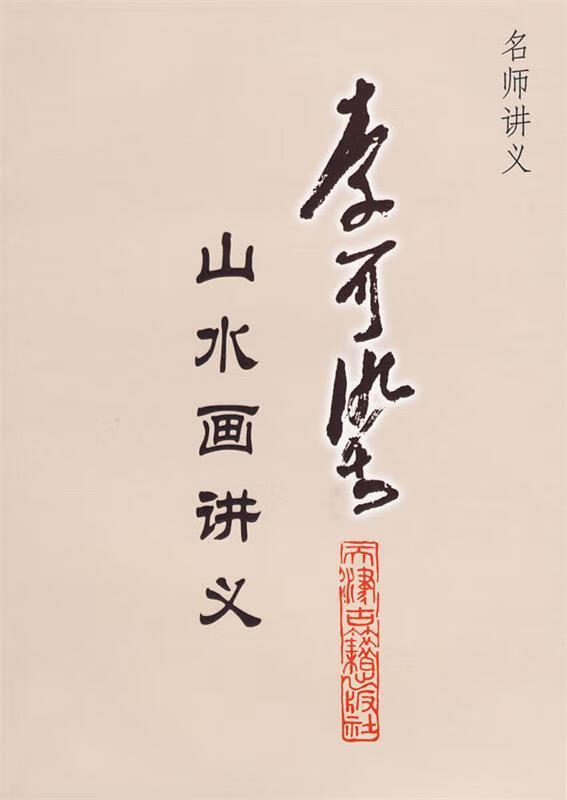 名师讲义
李可染
山水画讲义
天津古籍出版社